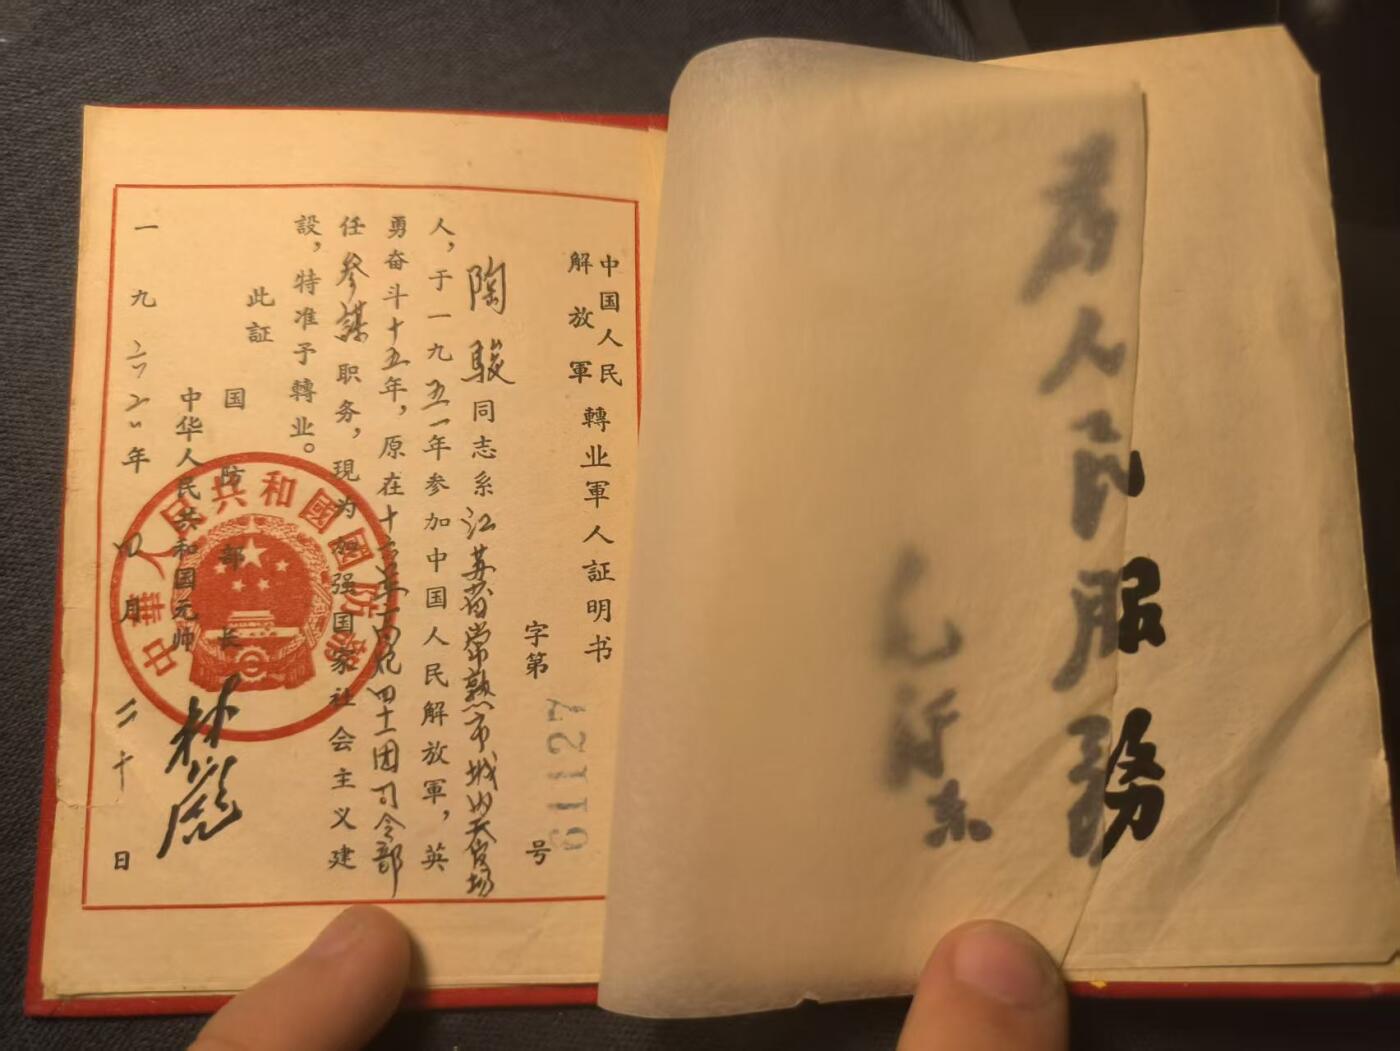 为人民服務
毛泽东
中国人民
解放軍
轉业軍人証明书
字第61127号
陶駿同志系江苏省常熟市城内天官坊
人，于一九五一年参加中国人民解放軍，英
勇奋斗十五年，原在十 团司令部
任参謀职务，現为加强国家社会主义建
設，特准予轉业。
此証
国防部长
中华人民共和国元帅
林彪
一九六二年四月二十日
中華人民共和國國防部